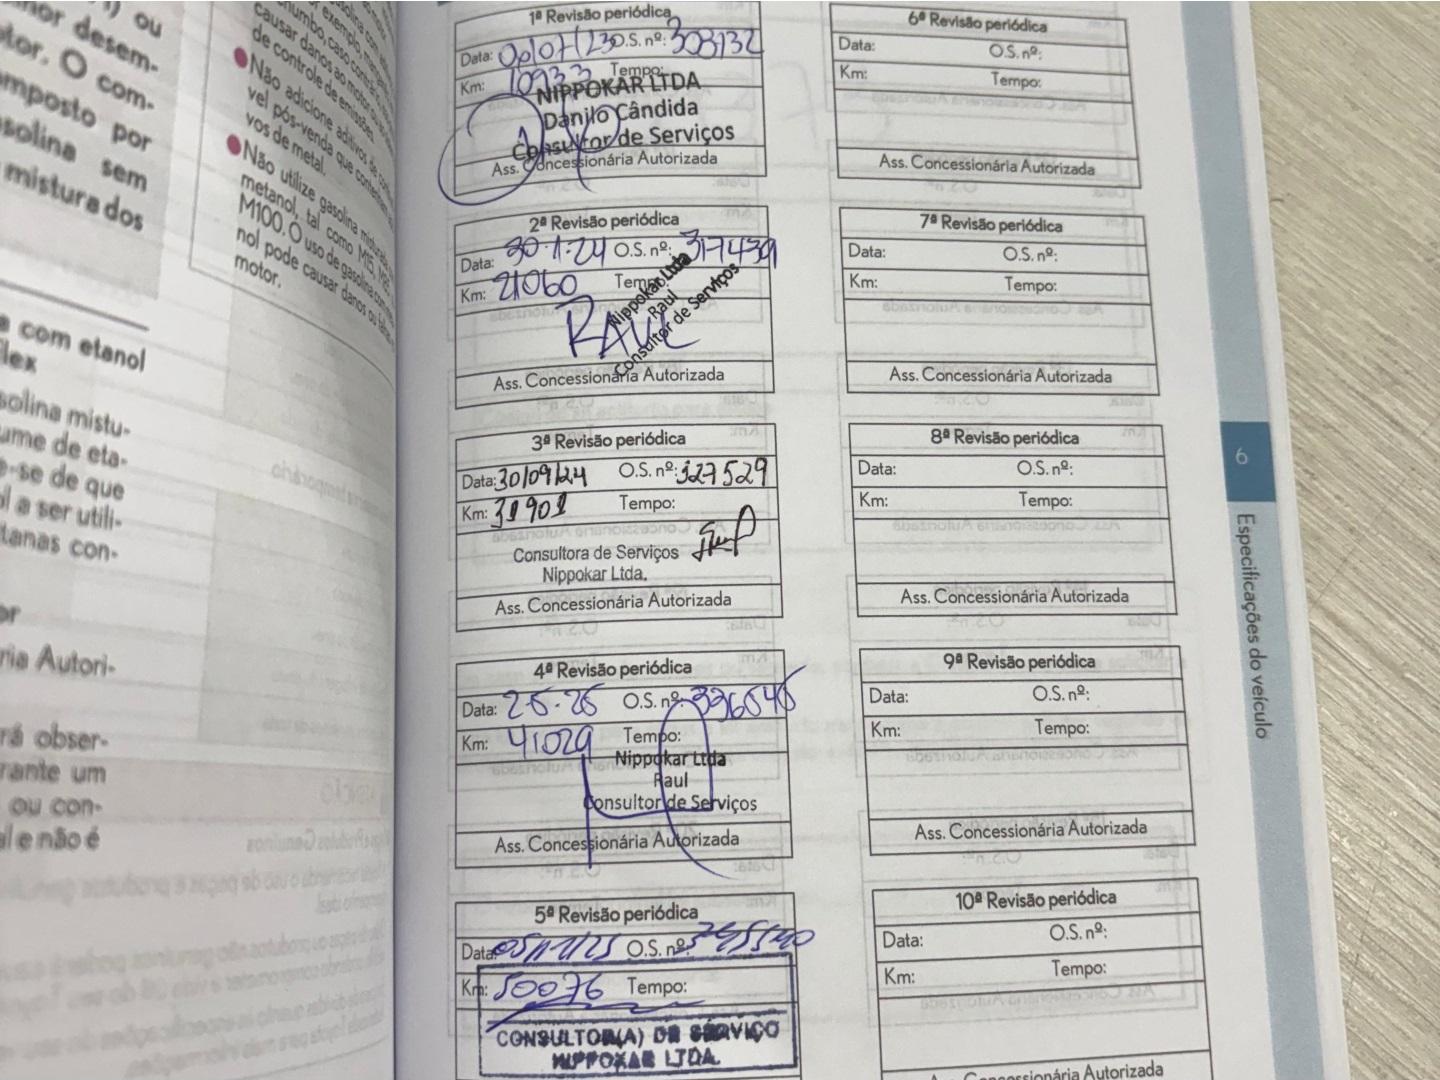 nor desem-
tor. O com-
mposto por
solina sem
misturados
a com etanol
lex
solina mistu-
ume de eta-
e-se de que
ol a ser utili-
tanas con-
or
ria Autori-
rá obser-
rante um
ou con-
al e não é
causar danos ao motor ou
de controle de emissões.
Não adicione aditivos de
vel pós-venda que contenham
vos de metal.
Não utilize gasolina misturada
metanol, tal como M15, M85,
M100. O uso de gasolina com
nol pode causar danos ou
motor.
1ª Revisão periódica
Data: O.S. nº: 303132
Km: 10933 Tempo:
NIPPOKAR LTDA
Danilo Cândida
Consultor de Serviços
Ass. Concessionária Autorizada
2ª Revisão periódica
Data: 30.1.24 O.S. nº: 317439
Km: 21060 Tempo:
Nippokar Ltda
Raul
Consultor de Serviços
RAUL
Ass. Concessionária Autorizada
3ª Revisão periódica
Data: 30/09/24 O.S. nº: 327529
Km: 31901 Tempo:
Consultora de Serviços
Nippokar Ltda.
Ass. Concessionária Autorizada
4ª Revisão periódica
Data: 2.5.25 O.S. nº: 336545
Km: 41029 Tempo:
Nippokar Ltda
Raul
Consultor de Serviços
Ass. Concessionária Autorizada
5ª Revisão periódica
Data: O.S. nº:
Km: 50076 Tempo:
CONSULTOR(A) DE SERVIÇO
NIPPOKAR LTDA.
6ª Revisão periódica
Data: O.S. nº:
Km: Tempo:
Ass. Concessionária Autorizada
7ª Revisão periódica
Data: O.S. nº:
Km: Tempo:
Ass. Concessionária Autorizada
8ª Revisão periódica
Data: O.S. nº:
Km: Tempo:
Ass. Concessionária Autorizada
9ª Revisão periódica
Data: O.S. nº:
Km: Tempo:
Ass. Concessionária Autorizada
10ª Revisão periódica
Data: O.S. nº:
Km: Tempo:
Ass. Concessionária Autorizada
6
Especificações do veículo